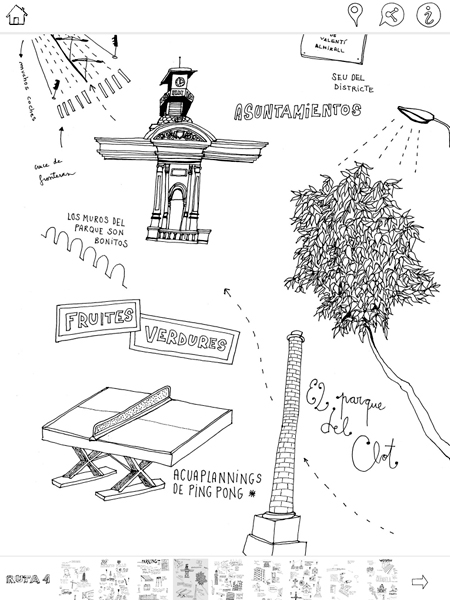 DE
VALENTÍ
ALMIRALL
SEU DEL
DISTRICTE
ASUNTAMIENTOS
muchos coches
cruce de
fronteras
LOS MUROS DEL
PARQUE SON
BONITOS
FRUITES
VERDURES
El parque
del
Clot
ACUAPLANNINGS
DE PING PONG *
RUTA 4